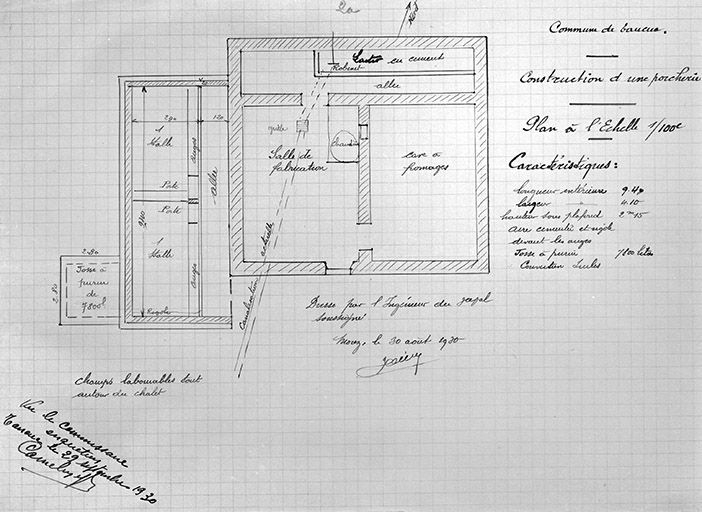 2a
Nord
Commune de
Construction d'une porcherie
Plan à l'Echelle 1/100e
Caractéristiques:
longueur intérieure 9.40
largeur — 4.10
hauteur sous plafond 2m15
aire cimentée et
devant les auges
Fosse à purin 7800 litres
Couverture tuiles
en ciment
Robinet
allée
grille
Salle de
fabrication
Chaudière
cave à
fromages
2.90
1.20
1
Stalle
Auges
Porte
Porte
allée
9.40
1
Stalle
Auges
Rigole
2.80
2.80
Fosse à
purin
de
7800l
Canalisation actuelle
Dressé par l'Ingénieur du
soussigné
Morez, le 30 août 1930
champs labourables tout
autour du chalet
Vu le commissaire
enquêteur
le 29 septembre 1930